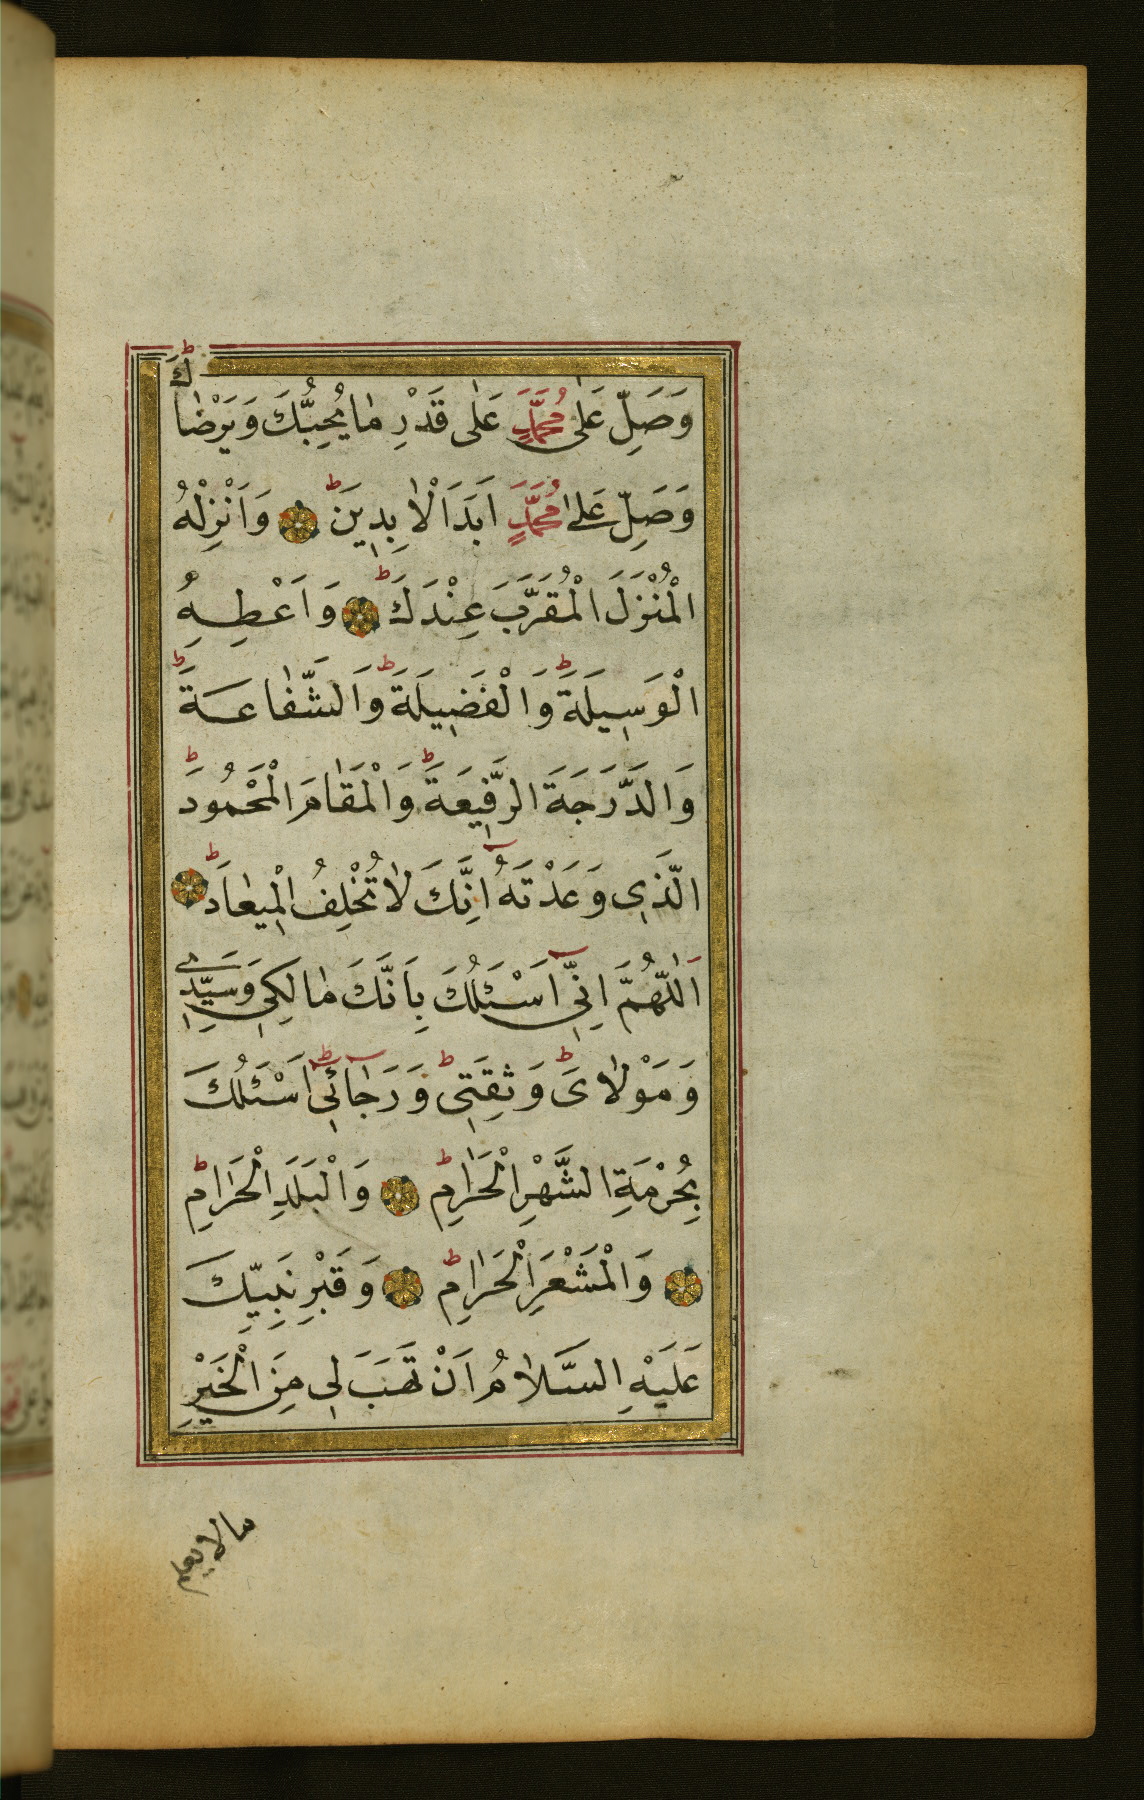 وَصَلِّ عَلٰى مُحَمَّدٍ عَلٰى قَدْرِ مٰا يُحِبُّكَ وَيَرْضٰاكَ
وَصَلِّ عَلٰى مُحَمَّدٍ اَبَدَ اَلْاٰبِدِينَ ط وَاَنْزِلْهُ
الْمُنْزَلَ الْمُقَرَّبَ عِنْدَكَ ط وَاَعْطِهِ
الْوَسِيلَةَ ط وَالْفَضِيلَةَ ط وَالشَّفٰاعَةَ ط
وَالدَّرَجَةَ الرَّفِيعَةَ ط وَالْمَقٰامَ الْمَحْمُودَ ط
الَّذِى وَعَدْتَهُ اِنَّكَ لٰا تُخْلِفُ الْمِيعٰادَ ط
اَللّٰهُمَّ اِنِّى اَسْئَلُكَ بِاَنَّكَ مٰالِكِى وَسَيِّدِى
وَمَوْلٰاىَ ط وَثِقَتِى ط وَرَجٰائِى ط اَسْئَلُكَ
بِحُرْمَةِ الشَّهْرِ الْحَرٰامِ ط وَالْبَلَدِ الْحَرٰامِ ط
وَالْمَشْعَرِ الْحَرٰامِ ط وَقَبْرِ نَبِيِّكَ
عَلَيْهِ السَّلٰامُ اَنْ تَهَبَ لِى مِنَ الْخَيْرِ
ما لا يعلم